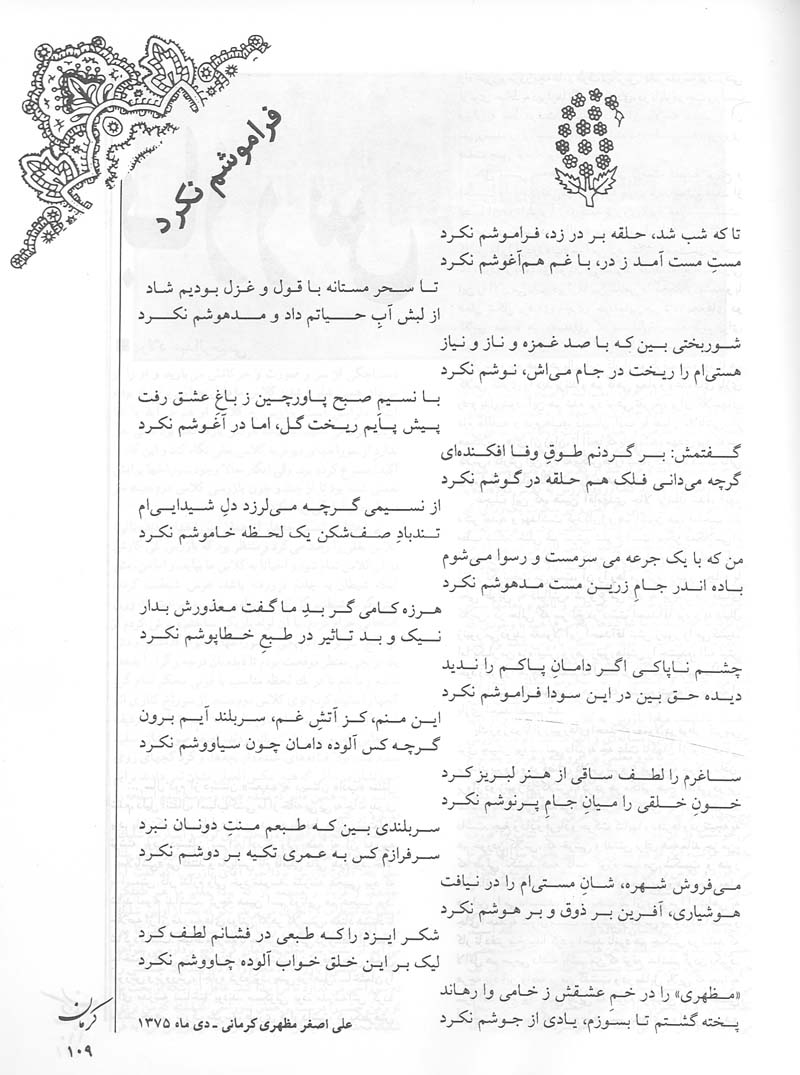 فراموشم نکرد
تا که شب شد، حلقه بر در زد، فراموشم نکرد
مستِ مست آمد ز در، با غم هم‌آغوشم نکرد
تا سحر مستانه با قول و غزل بودیم شاد
از لبش آبِ حیاتم داد و مدهوشم نکرد
شوربختی بین که با صد غمزه و ناز و نیاز
هستی‌ام را ریخت در جام می‌اش، نوشم نکرد
با نسیم صبح پاورچین ز باغِ عشق رفت
پیش پایم ریخت گل، اما در آغوشم نکرد
گفتمش: بر گردنم طوقِ وفا افکنده‌ای
گرچه می‌دانی فلک هم حلقه در گوشم نکرد
از نسیمی گرچه می‌لرزد دلِ شیدایی‌ام
تندبادِ صف‌شکن یک لحظه خاموشم نکرد
من که با یک جرعه می سرمست و رسوا می‌شوم
باده اندر جامِ زرین مست مدهوشم نکرد
هرزه کامی گر بدِ ما گفت معذورش بدار
نیک و بد تاثیر در طبعِ خطاپوشم نکرد
چشم ناپاکی اگر دامانِ پاکم را ندید
دیده حق بین در این سودا فراموشم نکرد
این منم، کز آتشِ غم، سربلند آیم برون
گرچه کس آلوده دامان چون سیاووشم نکرد
ساغرم را لطف ساقی از هنر لبریز کرد
خونِ خلقی را میانِ جامِ پرنوشم نکرد
سربلندی بین که طبعم منتِ دونان نبرد
سرفرازم کس به عمری تکیه بر دوشم نکرد
می‌فروش شهره، شانِ مستی‌ام را در نیافت
هوشیاری، آفرین بر ذوق و بر هوشم نکرد
شکر ایزد را که طبعی در فشانم لطف کرد
لیک بر این خلق خواب آلوده چاووشم نکرد
«مظهری» را در خمِ عشقش ز خامی وا رهاند
پخته گشتم تا بسوزم، یادی از جوشم نکرد
علی اصغر مظهری کرمانی ـ دی ماه ۱۳۷۵
کرمان
۱۰۹